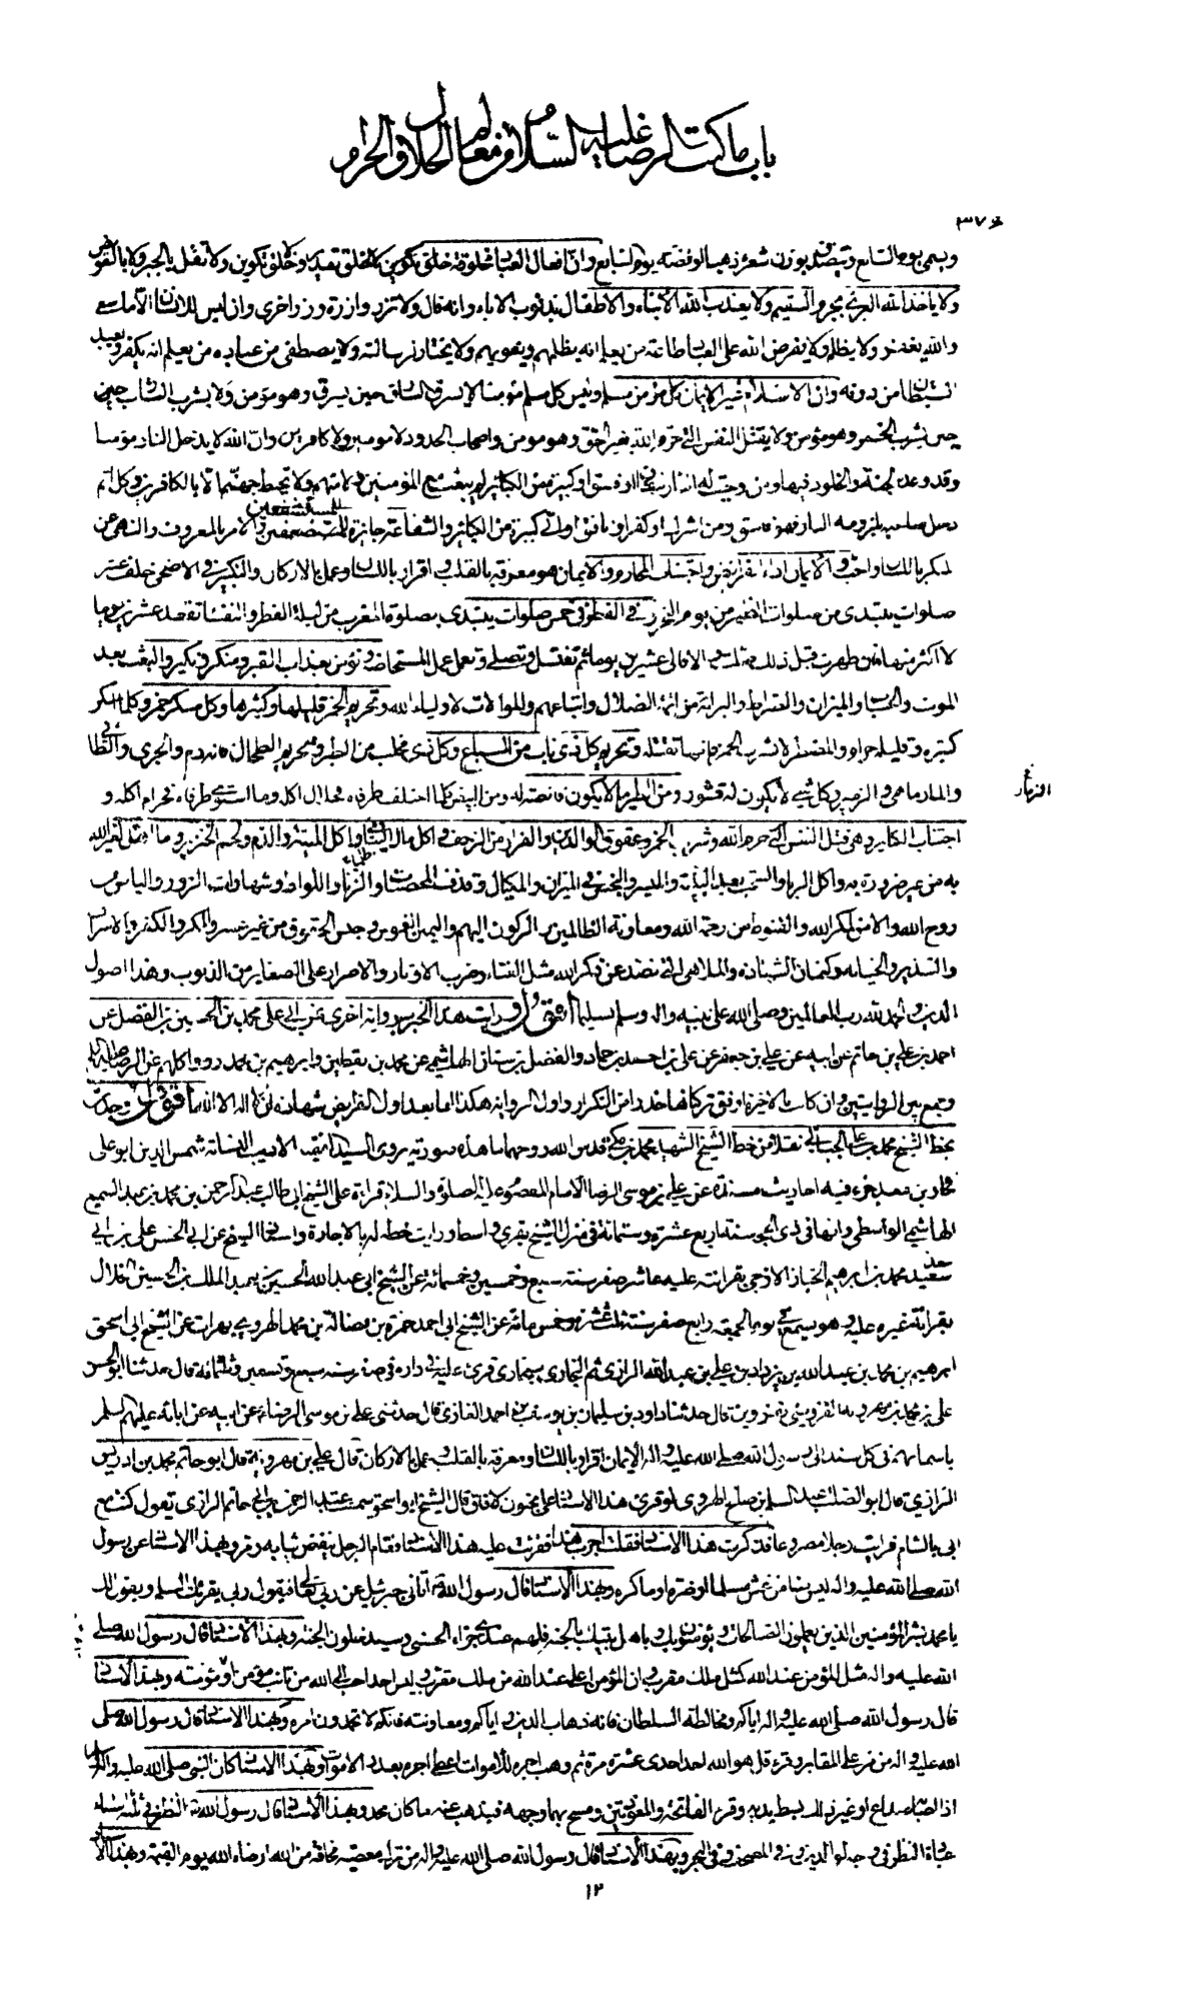 باب ما كتب الرضا عليه السلام من معالم الحلال والحرام
٣٧٦
ويسمى يوم السابع ويتصدق بوزن شعره ذهبا او فضة يوم السابع وان افعال العباد مخلوقة خلق تكوين لا خلق تقدير ولا تقل بالجبر ولا بالتفويض
ولا ياخذ الله البرئ بجرم السقيم ولا يعذب الله الابناء والاطفال بذنوب الاباء وانه قال ولا تزر وازرة وزر اخرى وان ليس للانسان الا ما سعى
والله يغفر ولا يظلم ولا يفرض الله على العباد طاعة من يعلم انه يظلمهم ويغويهم ولا يختار لرسالته ولا يصطفى من عباده من يعلم انه يكفر ويعبد
الشيطان من دونه وان الاسلام غير الايمان كل مؤمن مسلم وليس كل مسلم مؤمنا لا يسرق السارق حين يسرق وهو مؤمن ولا يشرب الشارب حين
حين يشرب الخمر وهو مؤمن ولا يقتل النفس التي حرم الله بغير الحق وهو مؤمن واصحاب الحدود لا مومنين ولا كافرين وان الله لا يدخل النار مؤمنا
وقد وعده الجنة والخلود فيها ومن وجبت له النار
للمستضعفين
دخل صاحبه بلزومه النار فهو فاسق ومن اشرك او كفر او نافق او اتى كبيرة من الكباير والشفاعة جايزة للمستضعفين والامر بالمعروف والنهى عن
المنكر باللسان واجب والايمان اداء الفرايض واجتناب المحارم والايمان هو معرفة بالقلب واقرار باللسان وعمل بالاركان والتكبير في الاضحى خلف عشر
صلوات يبتدى من صلوات الظهر من يوم النحر وفي الفطر في خمس صلوات يبتدى بصلوة المغرب من ليلة الفطر والنفساء تقعد عشرين يوما
لا اكثر منها فان طهرت قبل ذلك صلت والا فالى عشرين يوما ثم تغتسل وتصلى وتعمل عمل المستحاضة ونؤمن بعذاب القبر ومنكر ونكير والبعث بعد
الموت والحساب والميزان والصراط والبراءة من ائمة الضلال واتباعهم والموالات لاولياء الله وتحريم الخمر قليلها وكثيرها وكل مسكر خمر وكلما اسكر
كثيره فقليله حرام والمضطر لا يشرب الخمر فانها تقتله وتحريم كل ذى ناب من السباع وكل ذى مخلب من الطير وتحريم الطحال فانه دم والجرى والطافى
والمارماهى والزمير وكل شئ لا يكون له قشور ومن الطير ما لا يكون قانصة له ومن البيض كلما اختلف طرفاه فحلال اكله وما استوى طرفاه فحرام اكله و
اجتناب الكباير وهى قتل النفس التي حرم الله وشرب الخمر وعقوق الوالدين والفرار من الزحف واكل مال اليتيم ظلما واكل الميتة والدم ولحم الخنزير وما اهل لغير الله
به من غير ضرورة به واكل الربا والسحت بعد البينة والميسر والبخس في الميزان والمكيال وقذف المحصنات والزنا واللواط وشهادات الزور والياس من
روح الله والامن لمكر الله والقنوط من رحمة الله ومعاونة الظالمين والركون اليهم واليمين الغموس وحبس الحقوق من غير عسر والمكر والكفر والاسراف
والتبذير والخيانة وكتمان الشهادة والملاهى التي تصد عن ذكر الله مثل الغناء وضرب الاوتار والاصرار على الصغاير من الذنوب وهذا اصول
الدين والحمد لله رب العالمين وصلى الله على نبيه واله وسلم تسليما اقول ورايت هذا الخبر برواية اخرى عن ابي على محمد بن الحسين بن الفضل عن
احمد بن على بن حاتم عن ابيه عن على بن جعفر عن على بن احمد بن حماد والفضل بن سنان الهاشمى عن محمد بن يقطين وابرهيم بن محمد رووا كلهم عن الرضا عليه السلام
وجمع بين الروايتين وان كانت الاخيرة اوفق تركناها حذرا من التكرار واول الرواية هكذا اما بعد اول الفرايض شهادة ان لا اله الا الله اقول وجدت
بخط الشيخ محمد بن على الجبائي نقلا من خط الشيخ الشهيد محمد بن مكى قدس الله روحهما ما هذه صورته يروى السيد الفقيه الاديب النسابة شمس الدين ابو على
فخار بن معد جزء فيه احاديث مسندة عن على بن موسى الرضا الامام المعصوم عليه الصلوة والسلام قراءة على الشيخ ابي طالب عبد الرحمن بن محمد بن عبد السميع
الهاشمى الواسطى وانهاه في ذى الحجة سنة اربع عشرة وستمائة في منزل الشيخ بقرى واسط ورايت خطه له بالاجازة واسناد الشيخ عن ابي الحسن على بن ابي
سعيد محمد بن ابرهيم الخباز الازجى بقراءته عليه عاشر صفر سنة سبع وخمسين وخمسمائة عن الشيخ ابي عبد الله الحسين بن عبد الملك بن الحسين الخلال
بقراءة غيره عليه وهو يسمع في يوم الجمعة رابع صفر سنة ثلث عشرة وخمسمائة عن الشيخ ابي احمد حمزة بن فضالة بن محمد الهروى بهراة عن الشيخ ابي اسحق
ابرهيم بن محمد بن عبد الله بن يزداد بن على بن عبد الله الرازى ثم البخارى ببخارى قرئ عليه في داره في صفر سنة سبع وتسعين وثلثمائة قال حدثنا ابو الحسن
على بن محمد بن مهرويه القزوينى بقزوين قال حدثنا داود بن سليمان بن يوسف بن احمد الغازى قال حدثنى على بن موسى الرضا عن ابيه عن ابائه عليهم السلم
باسمائهم في كل سند الى رسول الله صلى الله عليه واله الايمان اقرار باللسان ومعرفة بالقلب وعمل بالاركان قال على بن مهرويه قال ابو حاتم محمد بن ادريس
الرازى قال ابو الصلت عبد السلام بن صالح الهروى لو قرئ هذا الاسناد على مجنون لافاق قال الشيخ ابو اسحق سمعت عبد الرحمن بن ابي حاتم الرازى يقول كنت مع
ابي بالشام فرايت رجلا مصروعا فذكرت هذا الاسناد فقلت اجرب هذا فقرئت عليه هذا الاسناد فقام الرجل ينفض ثيابه ومر وبهذا الاسناد عن رسول
الله صلى الله عليه واله ليس منا من غش مسلما او ضره او ماكره وبهذا الاسناد قال رسول الله اتانى جبرئيل عن ربى تعالى فيقول ربى يقرئك السلم ويقول لك
يا محمد بشر المؤمنين الذين يعملون الصالحات ويؤمنون بك وباهل بيتك بالجنة فلهم عندى جزاء الحسنى وسيدخلون الجنة وبهذا الاسناد قال رسول الله صلى
الله عليه واله مثل المؤمن عند الله كمثل ملك مقرب وان المؤمن اعظم عند الله من ملك مقرب وليس احد احب الى الله من تائب مؤمن او مؤمنة وبهذا الاسناد
قال رسول الله صلى الله عليه واله اياكم ومخالطة السلطان فانه ذهاب الدين واياكم ومعاونته فانكم لا تحمدون امره وبهذا الاسناد قال رسول الله صلى
الله عليه واله من مر على المقابر وقرء قل هو الله احد احدى عشرة مرة ثم وهب اجره للاموات اعطى اجره بعدد الاموات وبهذا الاسناد كان النبى صلى الله عليه واله
اذا اصابه صداع او غير ذلك بسط يديه وقرء الفاتحة والمعوذتين ومسح بهما وجهه فيذهب عنه ما كان يجد وبهذا الاسناد قال رسول الله النظر في ثلثة اشياء
عبادة النظر في وجه الوالدين وفي المصحف وفي البحر وبهذا الاسناد قال رسول الله صلى الله عليه واله من ترك معصية مخافة من الله ارضاه الله يوم القيمة وبهذا الا
١٢